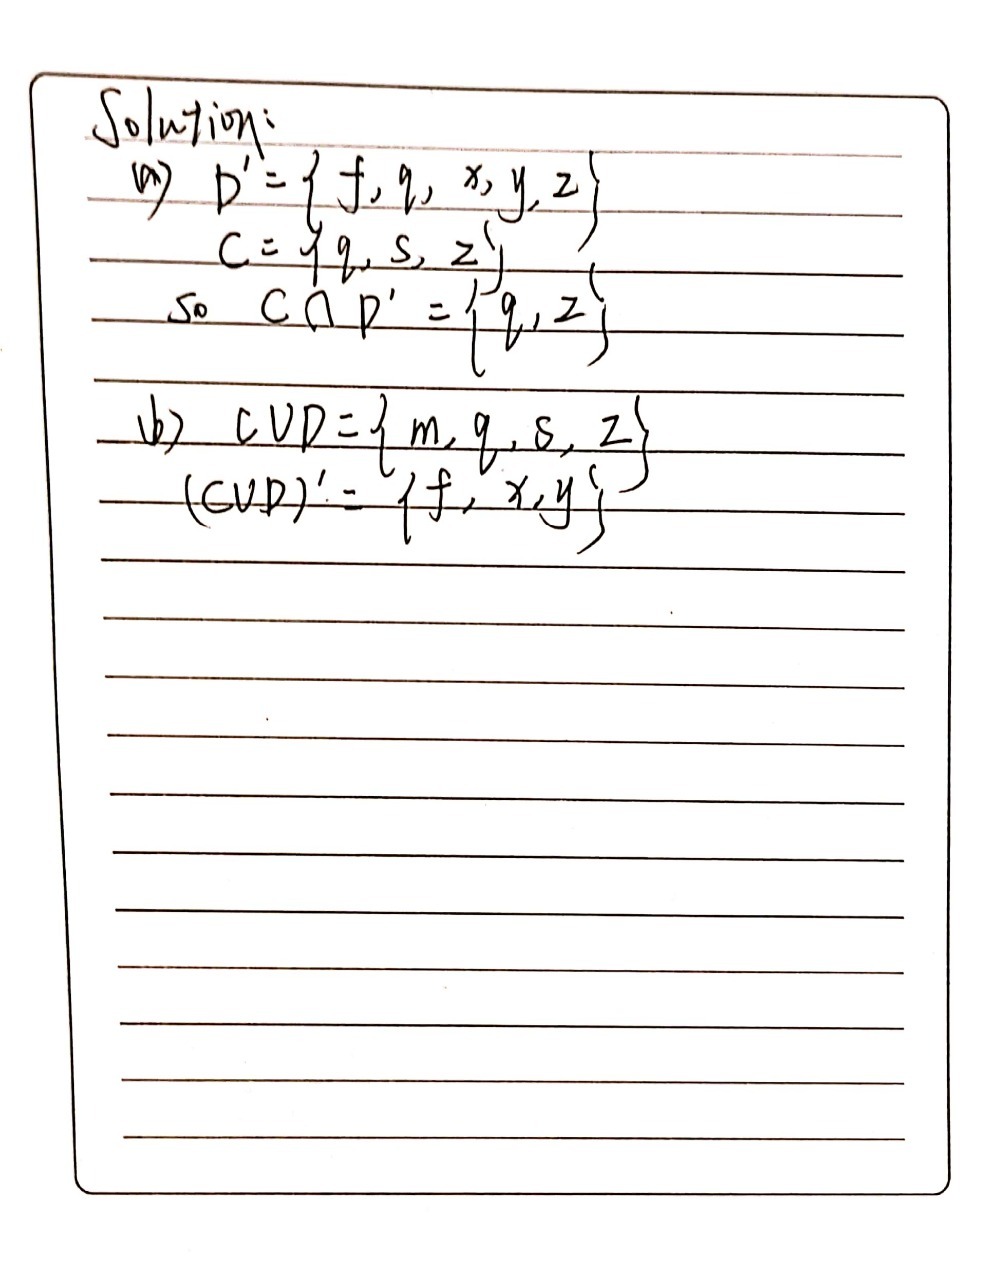 Solution:
(a) D' = { f, q, x, y, z}
C = {q, s, z}
So C ∩ D' = {q, z}
(b) C∪D = { m, q, s, z}
(C∪D)' = {f, x, y}